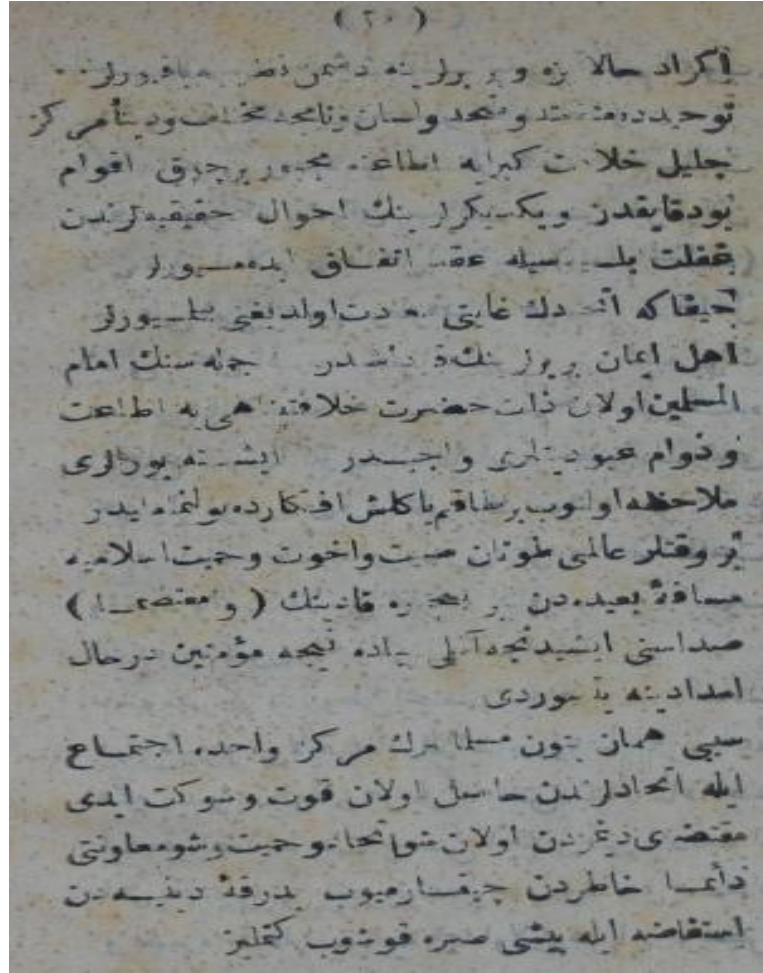 ( ٢٠ )
اكراد حالا و بربرلرينه دشمن
توحيدده متحد ولسان مختلف مركز
جليل خلافت كبرايه اطاعته مجبور برچوق اقوام
بودقايقدن ويكديكرلرينك احوال حقيقيه لرندن
غفلت عقد اتفاق ايده ميورلر
حيفاكه غايتى اولديغنى بيلميورلر
اهل ايمان بربرلرينك جمله سنك امام
المسلمين اولان ذات حضرت خلافتپناهى يه اطاعت
ودوام عبوديتلرى واجبدر ايشته بورالرى
ملاحظه اولنوب برطاقم ياكلش افكارده بولنمامليدر
بر وقتلر عالمى طوتان صيت واخوت وحميت اسلاميه
مسافهٔ بعيده دن بر قادينك ( و معتصما )
صداسنى ايشيدنجه آتلى پياده نيجه مؤمنين درحال
امدادينه يتشوردى
سببى همان بتون مسلمانلرك مركز واحده اجتماع
ايله اتحادلرندن حاصل اولان قوت وشوكت ايدى
اولان شو اتحاد وحميت وشو معاونتى
دائما خاطردن چيقارميوب بدرقهٔ دينيه دن
استفاضه ايله پيشى صره قوشوب كتمليز